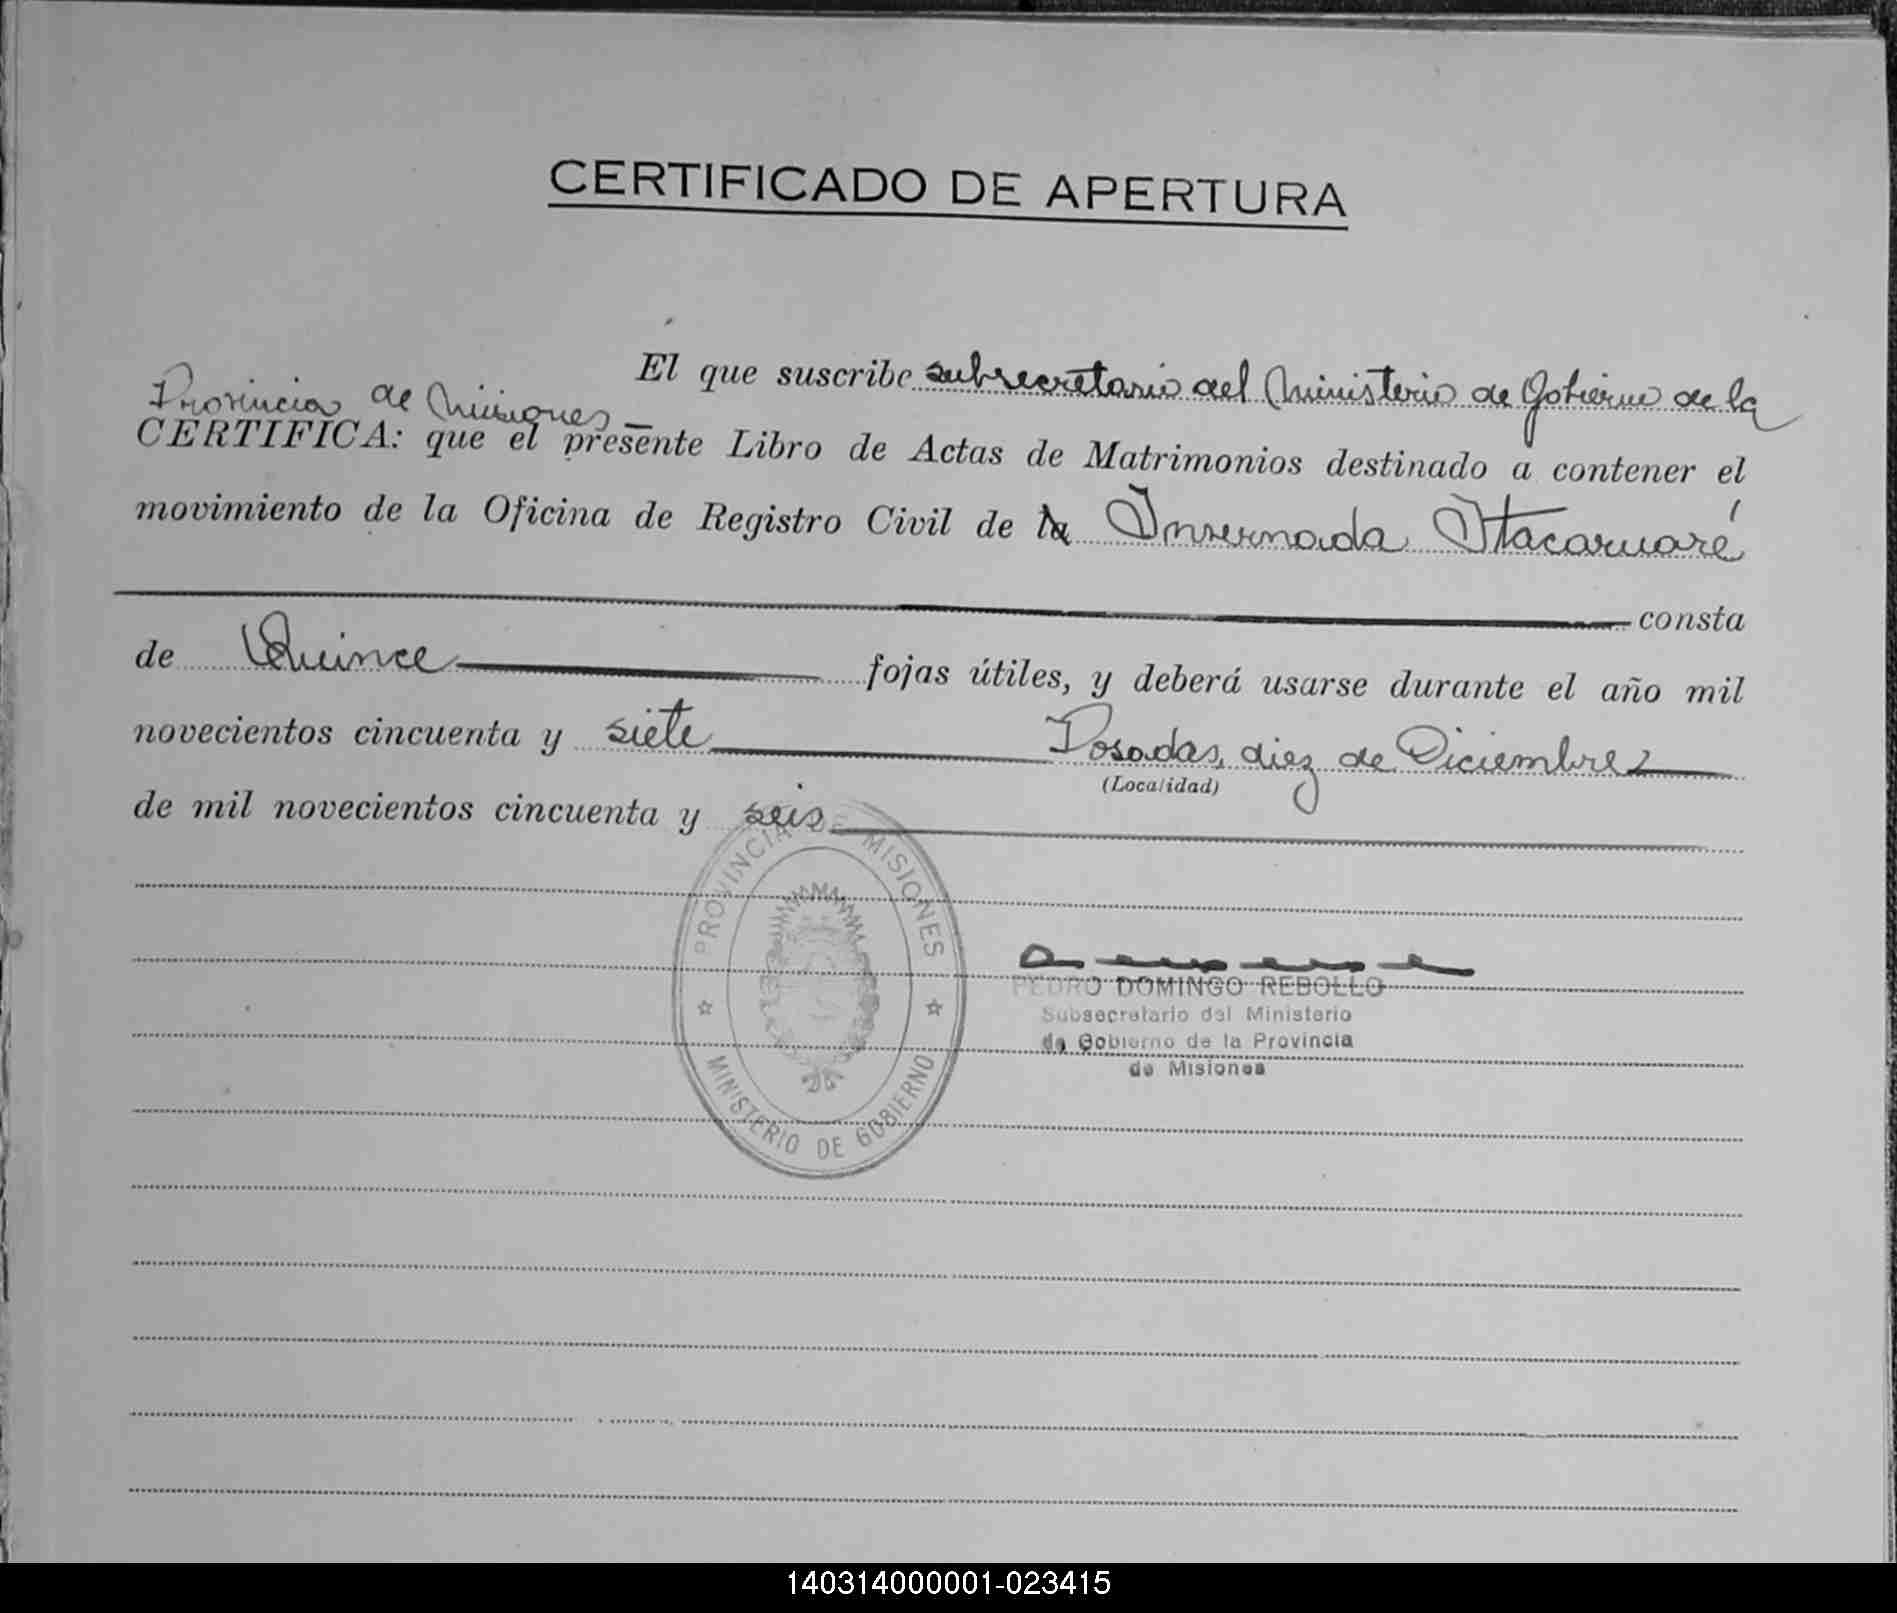 CERTIFICADO DE APERTURA
El que suscribe subsecretario del Ministerio de Gobierno de la
Provincia de Misiones
CERTIFICA: que el presente Libro de Actas de Matrimonios destinado a contener el
movimiento de la Oficina de Registro Civil de la Invernada Itacaruaré
consta
de Quince fojas útiles, y deberá usarse durante el año mil
novecientos cincuenta y siete Posadas, diez de Diciembre
(Localidad)
de mil novecientos cincuenta y seis
PROVINCIA DE MISIONES
MINISTERIO DE GOBIERNO
PEDRO DOMINGO REBOLLO
Subsecretario del Ministerio
de Gobierno de la Provincia
de Misiones
140314000001-023415